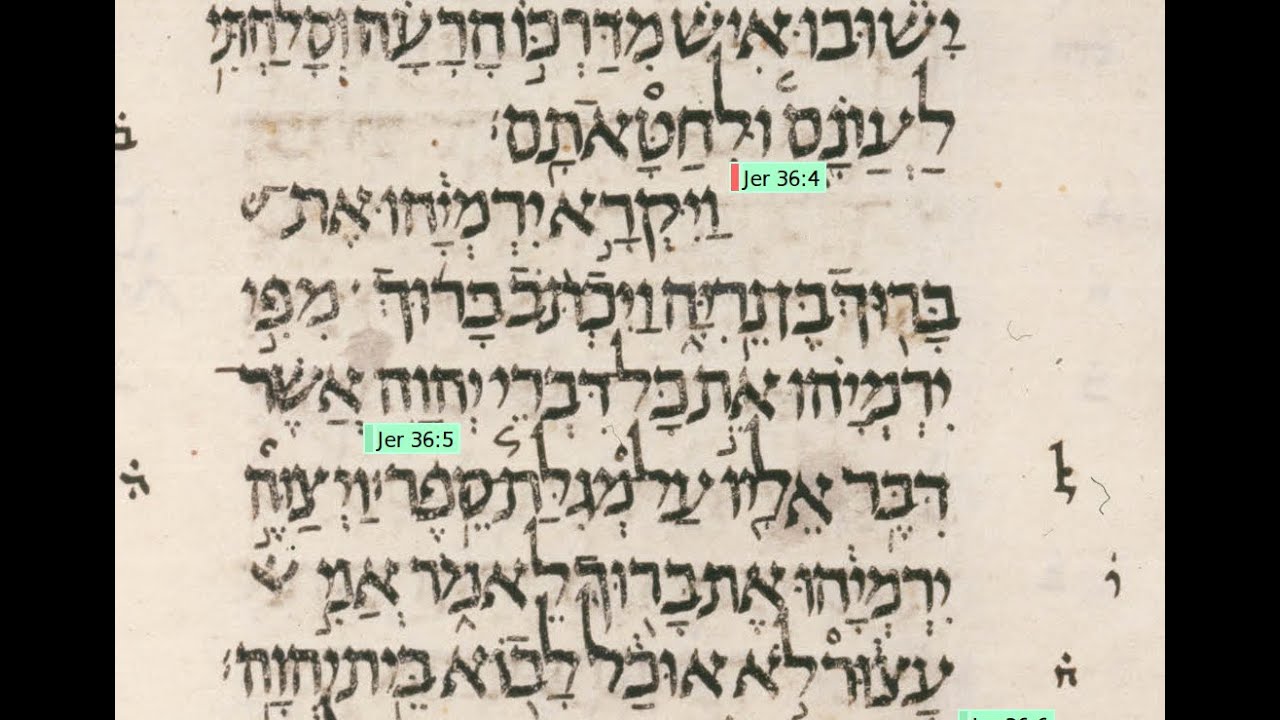 יָשׁוּבוּ אִישׁ מִדַּרְכּוֹ הָרָעָה וְסָלַחְתִּי
לַעֲוֺנָם וּלְחַטָּאתָם׃
ב̇
Jer 36:4
וַיִּקְרָא יִרְמְיָהוּ אֶת
בָּרוּךְ בֶּן נֵרִיָּה וַיִּכְתֹּב בָּרוּךְ מִפִּי
יִרְמְיָהוּ אֵת כָּל דִּבְרֵי יְהוָה אֲשֶׁר
Jer 36:5
ל
דִּבֶּר אֵלָיו עַל מְגִלַּת סֵפֶר׃ וַיְצַוֶּה
ה̇
יִרְמְיָהוּ אֶת בָּרוּךְ לֵאמֹר אֲנִי
ה̇
עָצוּר לֹא אוּכַל לָבוֹא בֵּית יְהוָה׃
Jer 36:6